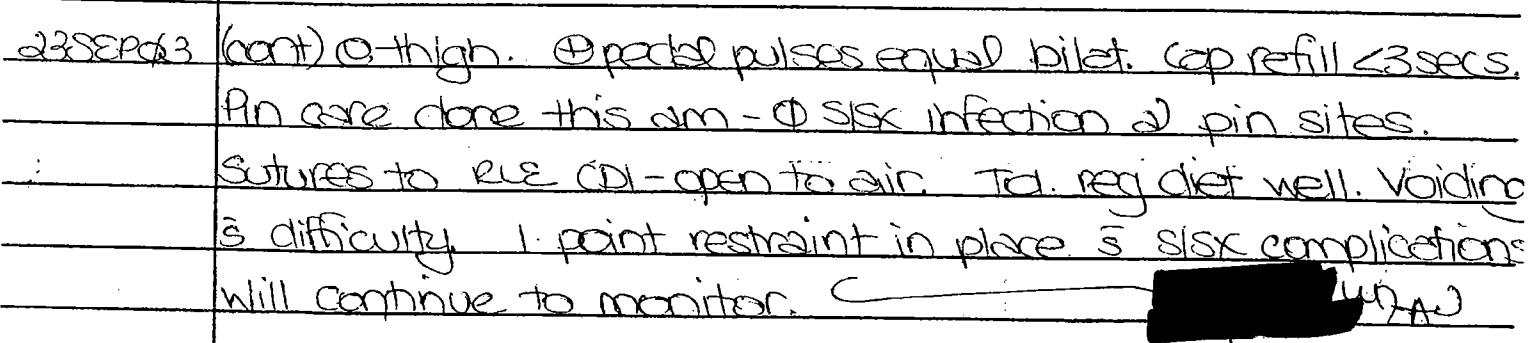 23SEPØ3 (cont) Ⓛ thigh. ⊕ pedal pulses equal bilat. Cap refill <3 secs.
Pin care done this am - Ø s/sx infection @ pin sites.
Sutures to RLE CDI - open to air. Tol. reg diet well. Voiding
s̄ difficulty. 1 point restraint in place s̄ s/sx complications
Will continue to monitor.